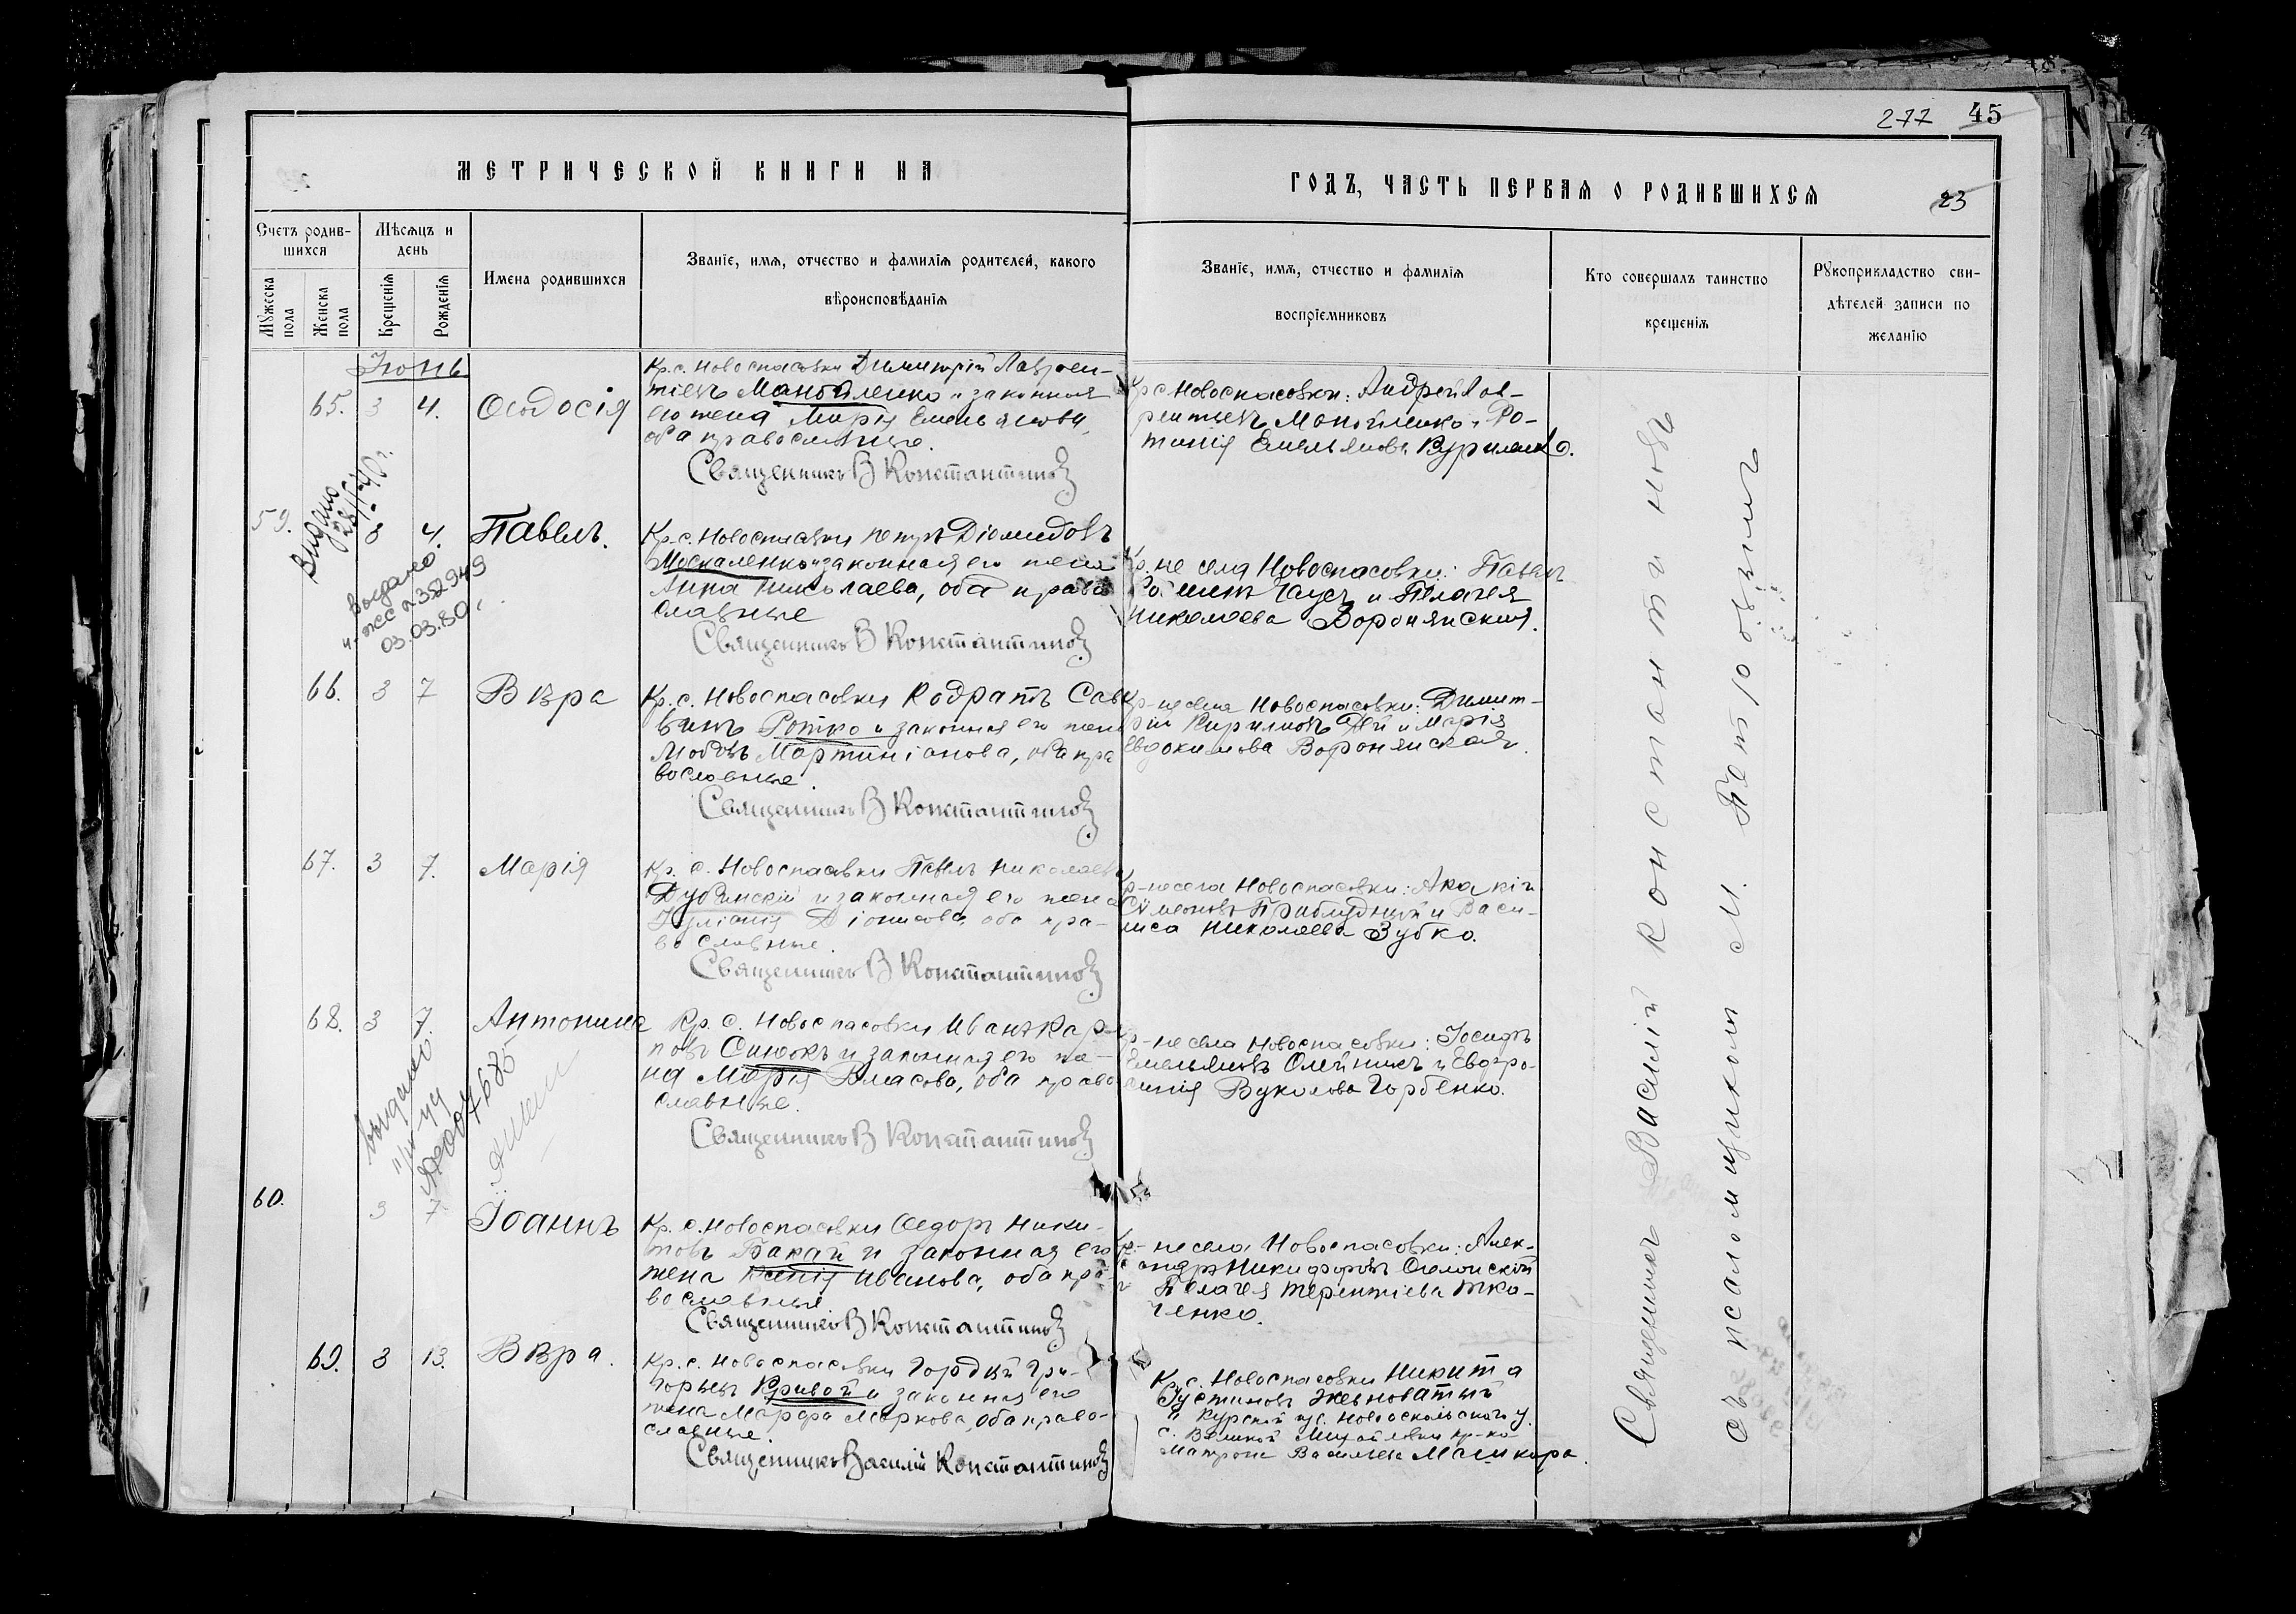 277 45
МЕТРИЧЕСКОЙ КНИГИ НА
ГОДЪ, ЧАСТЬ ПЕРВАЯ О РОДИВШИХСЯ
23
Счетъ родив-
шихся
Мѣсяцъ и
день
Мужеска
пола
Женска
пола
Крещенія
Рожденія
Имена родившихся
Званіе, имя, отчество и фамилія родителей, какого
вѣроисповѣданія
Званіе, имя, отчество и фамилія
воспріемниковъ
Кто совершалъ таинство
крещенія
Рукоприкладство сви-
дѣтелей записи по
желанію
Іюнь
65. 3 4. Ѳеодосія
Кр. с. Новоспасовки Димитрій Лаврен-
тіевъ Манойленко и законная
его жена Марія Емельянова,
оба православные.
Священникъ В Константиновъ
Кр с. Новоспасовки: Андрей Лав-
рентьевъ Манойленко и Фо-
тинія Емельянова Куриленко.
59. 3 4. Павелъ.
Видано
выдано
03.03.80
Кр. с. Новоспасовки Петръ Діомидовъ
Москаленко и законная его жена
Анна Николаева, оба право
славные
Священникъ В Константиновъ
Кр-не села Новоспасовки: Павелъ
Чаусъ и Пелагея
Николаева Воронянская.
66. 3 7 Вѣра
Кр. с. Новоспасовки Кодратъ Сав
винъ Ротко и законная его жена
Любовь Мартиніанова, оба пра
вославные.
Священникъ В Константиновъ
Кр-не села Новоспасовки: Димит-
рій Кириловъ и Марія
Евдокимова Воронянская.
67. 3 7. Марія
Кр. с. Новоспасовки Павелъ Николаевъ
Дубинскій и законная его жена
Іуліанія Діонисова, оба пра-
вославные.
Священникъ В Константиновъ
Кр-не села Новоспасовки: Акакій
Симеоновъ Приблудный и Васи-
лиса Николаева Зубко.
68. 3 7. Антонина
выдано
Кр. с. Новоспасовки Иванъ Кар
повъ Синюкъ и законная его же-
на Марія Власова, оба право
славные.
Священникъ В Константиновъ
Кр-не села Новоспасовки: Іосифъ
Емельяновъ Олейникъ и Евфро-
синія Вуколова Горбенко.
60. 3 7. Іоаннъ
Кр. с. Новоспасовки Ѳедоръ Ники-
товъ Бакай и законная его
жена Ксенія Иванова, оба пра-
вославные.
Священникъ В Константиновъ
Кр-не села Новоспасовки: Алек-
сандръ Никифоровъ
и Пелагея Терентіева Тка-
ченко.
69. 3 13. Вѣра.
Кр. с. Новоспасовки Гордѣй Гри-
горьевъ Кривой и законная его
жена Марфа Маркова, оба право-
славные.
Священникъ Василій Константиновъ
Кр. с. Новоспасовки Никита
Іустиновъ Жевноватый
и Курской губ. Новооскольскаго у.
с. Великой Михайловки кр-ка
Матрона Васильева Машкара.
Священникъ Василій Константиновъ
съ псаломщикомъ М.